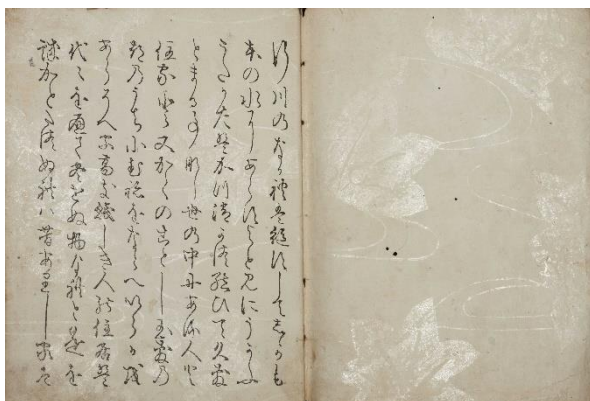 行川のなかれは絶すしてしかも
本の水にあらすよとみにうかふ
うたかたはかつ消かつ結ひて久敷
とまる事なし世の中にある人と
住家と又かくのことし玉敷の
都のうちにむねをならへいらかを
あらそへる高き賤しき人の住居は
代々を経て尽せぬ物なれと是を
誠かと尋ぬれは昔ありし家は